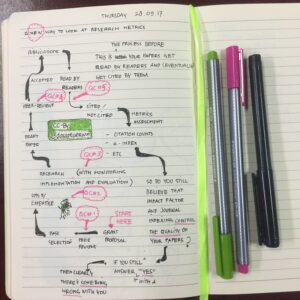 THURSDAY 28.09.17
WAY TO LOOK AT RESEARCH METRICS
THE PROCESS BEFORE
THIS IS YOUR PAPERS GET
READ BY READERS AND (EVENTUALLY)
GET CITED BY THEM.
ACCEPTED
READ BY
READERS
PEER-REVIEW
CITED /
NOT CITED
METRICS
ASSESSMENT
- CITATION COUNTS
- h-INDEX
- ETC
CC-BY
RESEARCH (WITH MONITORING
IMPLEMENTATION AND EVALUATION)
SO DO YOU STILL
BELIEVE THAT
IMPACT FACTOR
AND JOURNAL
INDEXING CONTROL
THE QUALITY OF
YOUR PAPERS?
START
HERE
GRANT
PROPOSAL
PEER
REVIEW
SELECTION
IF YOU STILL
ANSWER "YES"
THEN CLEARLY
THERE'S SOMETHING
WRONG WITH YOU